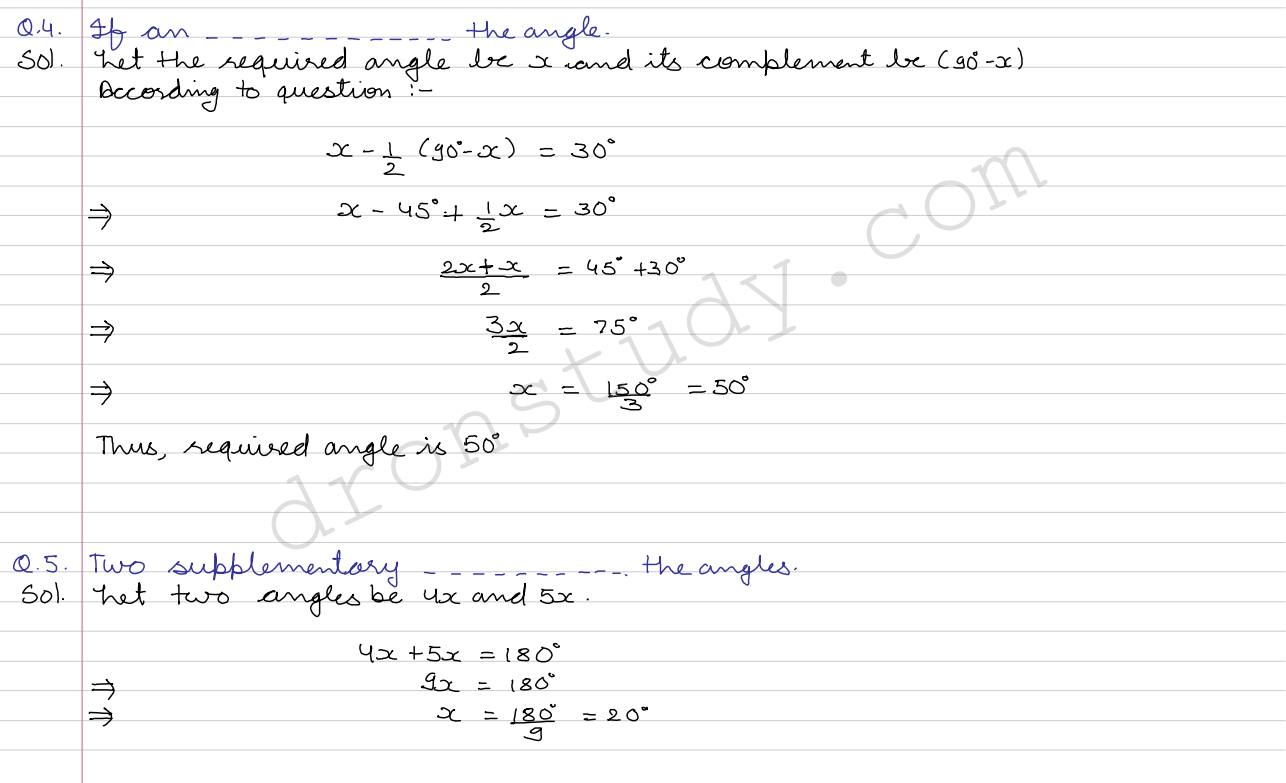 Q.4. If an _ _ _ _ _ _ _ _ _ _ _ _ _ the angle.
Sol. Let the required angle be x and its complement be (90°-x)
According to question :-
x - 1/2 (90°-x) = 30°
⇒ x - 45° + 1/2 x = 30°
⇒ 2x+x/2 = 45° +30°
⇒ 3x/2 = 75°
⇒ x = 150°/3 = 50°
Thus, required angle is 50°
Q.5. Two supplementary _ _ _ _ _ _ _ _ _ _ . the angles.
Sol. Let two angles be 4x and 5x.
4x +5x = 180°
⇒ 9x = 180°
⇒ x = 180°/9 = 20°
dronstudy.com